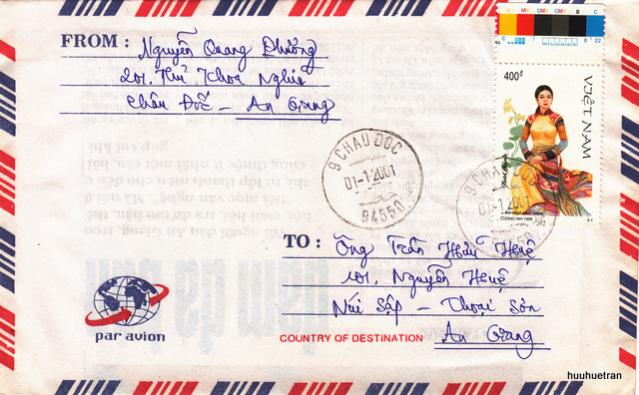 FROM : Nguyễn Quang Phưởng
201. Thủ Khoa Nghĩa
Châu Đốc - An Giang
400đ
VIỆT NAM
9 CHAU DOC
01-1.2001
94550
9 CHAU DOC
01-1.2001
TO : Ông Trần Hữu Huệ
101. Nguyễn Huệ
Núi Sập - Thoại Sơn
COUNTRY OF DESTINATION An Giang
par avion
huuhuetran